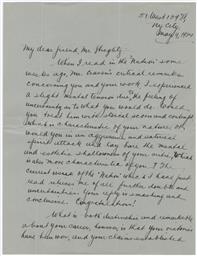 51 West 139 St
Ny City,
May 9, 1924
My dear friend, Mr. Haughty:-
When I read in the "Nation" some
concerning you and your work, I experienced
a slight mental tension, due to the feeling of
uncertainty as to what you would do. Would
you treat him with stoical scorn and contempt
(which is characteristic of your nature) or
would you in an aggressive and natural
spirited attack and lay bare the mental
and esthetic shallowness of your critic, which
is also more characteristic of you? The
current week of the "Nation" which I have just
read relieves me of all further doubts and
uncertainties. Your reply is smashing and
conclusive. Congratulations!
What is both distinctive and remarkable
about your career, however, is that your victories
have been won, and your claims established